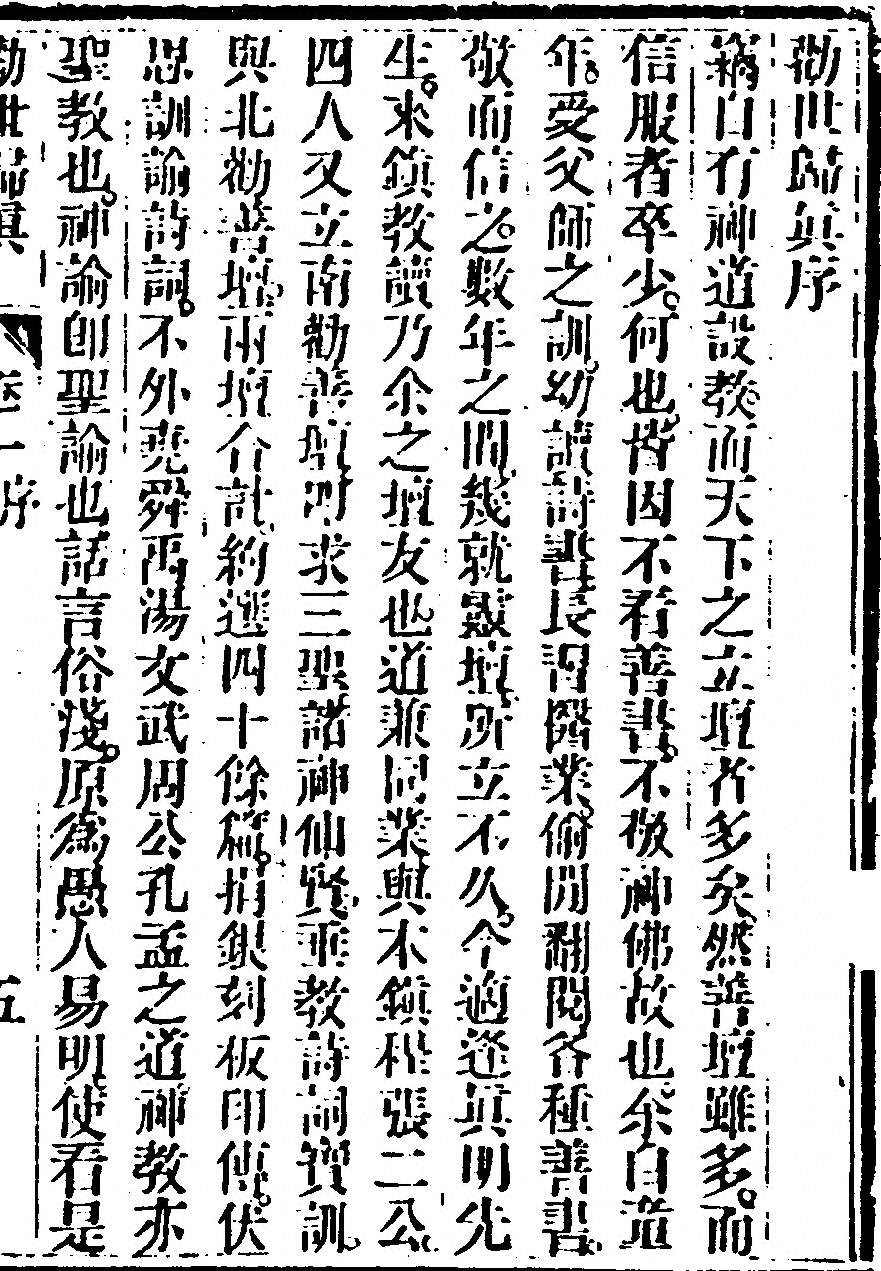 勸世歸真序
竊自有神道設教而天下之立壇者多矣然善壇雖多。而
信服者卒少。何也皆因不看善書。不敬神佛故也余自造
年。受父師之訓幼讀詩書長習醫業偷閒翻閱各種善書
敬而信之。數年之間幾就數壇所立不久。今適逢真明先
生。來鎮教讀乃余之壇友也道兼同業與本鎮程張二公
四人又立南勸善壇叩求三聖諸神仙賢垂教詩詞寶訓
與北勸善壇兩壇合計約選四十餘篇。捐銀刻板印傳。伏
思訓諭詩詞。不外堯舜禹湯文武周公孔孟之道神教亦
聖教也。神諭卽聖諭也話言俗淺。原為愚人易明使看是
勸世歸真　卷一序　五